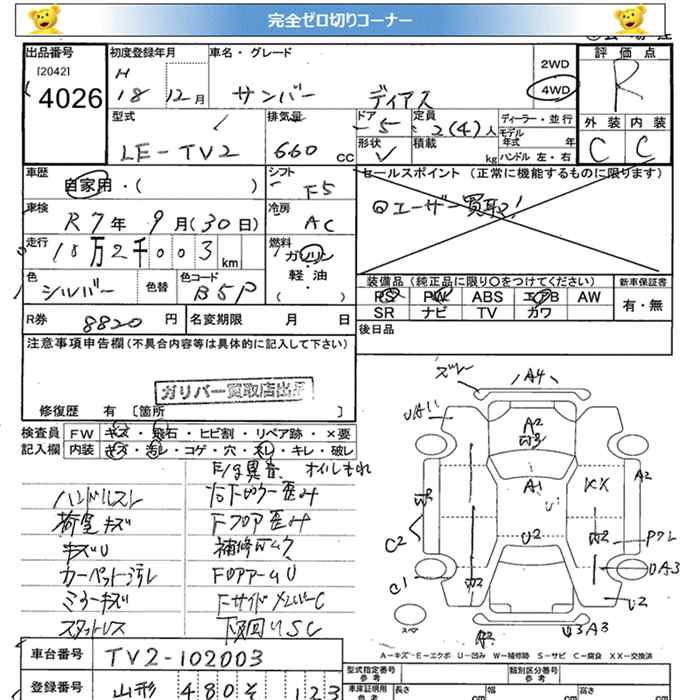 完全ゼロ切りコーナー
出品番号
[2042]
4026
初度登録年月
H
18 12月
車名・グレード
サンバー ディアス
2WD
4WD
評価点
R
外装 内装
C C
型式
LE-TV2
排気量
660 cc
ドア
5
形状
V
定員
2(4)人
積載
kg
ディーラー・並行
モデル
年式 年
ハンドル 左・右
車歴
自家用・( )
シフト
F5
セールスポイント (正常に機能するものに限ります)
ユーザー買取!
車検
R7年 9月(30日)
冷房
AC
走行
10万2千003 km
燃料
ガソリン
軽・油
( ・ )
色
シルバー
色替
色コード
B5P
装備品 (純正品に限り○をつけてください)
新車保証書
PS PW ABS エアB AW
SR ナビ TV カワ
有・無
R券 8820 円
名変期限 月 日
後日品
注意事項申告欄(不具合内容等は具体的に記入して下さい)
ガリバー買取店出品
修復歴 有 [箇所 ]
検査員 FW キズ・飛石・ヒビ割・リペア跡・×要
記入欄 内装 キズ・汚レ・コゲ・穴・スレ・キレ・破レ
E/g異音 オイルもれ
ハンドルスレ
荷室キズ
Fフロア歪み
キズU
補修
カーペット汚レ
FロアアームU
ミラーキズ
FサイドメンバーC
スタットレス
下回りSC
ズレ
A4
UA11
A2
A1
XX
A2
U2
C2
C1
UA3
U2
U3A3
スペア
A-キズ E-エクボ U-凹み W-補修跡 S-サビ C-腐食 XX-交換済
車台番号 TV2-102003
登録番号 山形 480 そ 123
型式指定番号
参考
類別区分番号
参考
車庫証明用
参考
長さ cm 幅 cm 高さ cm